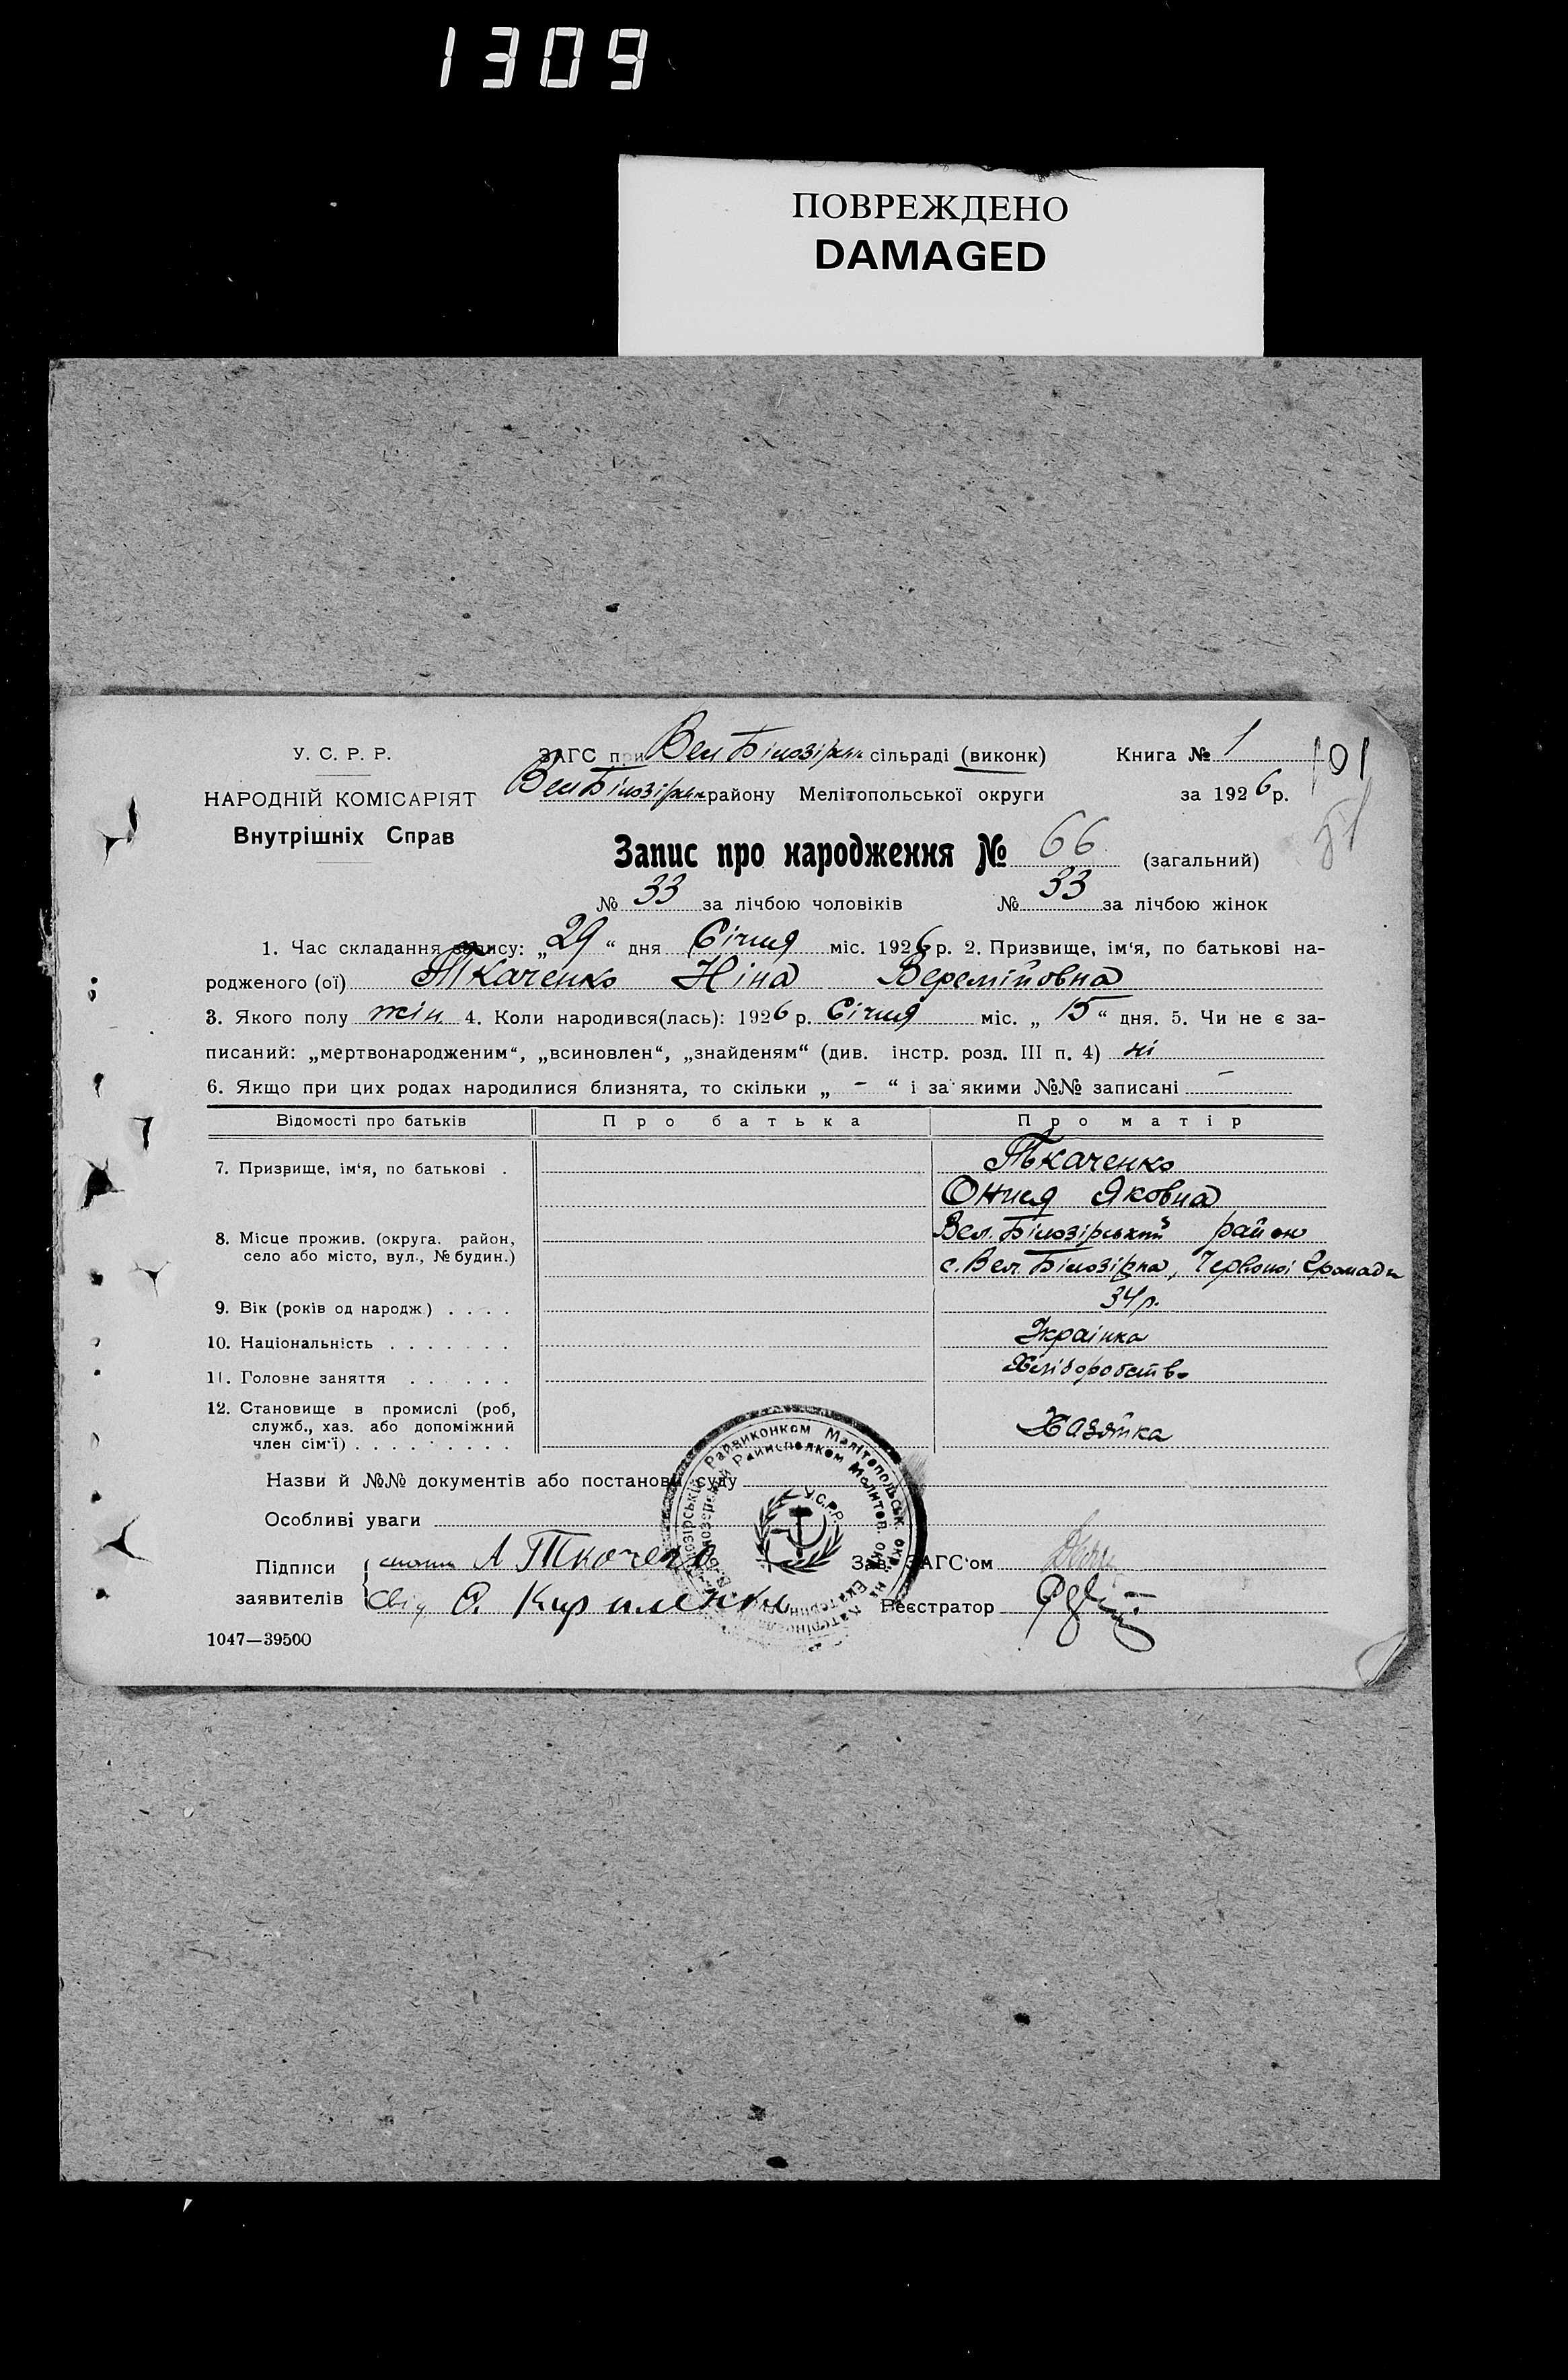 1309
ПОВРЕЖДЕНО
DAMAGED
У. С. Р. Р.
НАРОДНІЙ КОМІСАРІЯТ
Внутрішніх Справ
ЗАГС при Вел Білозірськ сільраді (виконк)
Книга № 1
101
Вел Білозірськ району Мелітопольської округи
за 1926 р.
Запис про народження № 66 (загальний)
№ 33 за лічбою чоловіків № 33 за лічбою жінок
1. Час складання запису: „29“ дня Січня міс. 1926 р. 2. Призвище, ім‘я, по батькові на-
родженого (ої) Ткаченко Ніна Веремійовна
3. Якого полу жін. 4. Коли народився(лась): 1926 р. Січня міс. „15“ дня. 5. Чи не є за-
писаний: „мертвонародженим“, „всиновлен“, „знайденям“ (див. інстр. розд. III п. 4) ні
6. Якщо при цих родах народилися близнята, то скільки „ - “ і за якими №№ записані -
Відомості про батьків
Про батька
Про матір
7. Призвище, ім‘я, по батькові .
Ткаченко
Яковна
8. Місце прожив. (округа. район,
село або місто, вул., № будин.)
Вел. Білозірський район
с. Вел. Білозірка, Червоної Громади
9. Вік (років од народж) . . . .
34 р.
10. Національність . . . . . . .
Українка
11. Головне заняття . . . . . .
Хліборобство
12. Становище в промислі (роб,
служб., хаз. або допоміжний
член сім‘ї) . . . . . . . . .
Хазяйка
Назви й №№ документів або постанови суду
Особливі уваги
Підписи
заявителів
Ткаченко
Свід Кириленко
Зав. ЗАГС‘ом
Реєстратор
Райвиконком Мелітопольськ. окр.
Райисполком Мелитоп. окр.
У.С.Р.Р.
1047—39500